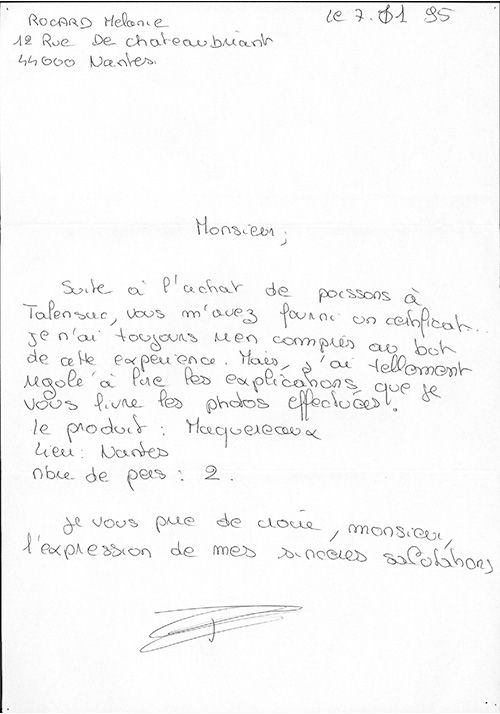 ROCARD Melanie
le 7.01 95
12 Rue De chateaubriant
44000 Nantes.
Monsieur;
Suite à l'achat de poissons à
Talensac, vous m'avez fourni un certificat...
je n'ai toujours rien compris au but
de cette expérience. Mais, j'ai tellement
rigolé à lire les explications, que je
vous livre les photos effectuées!
le produit : Maquereaux
Lieu: Nantes
nbre de pers : 2.
je vous prie de croire, monsieur,
l'expression de mes sincères salutations